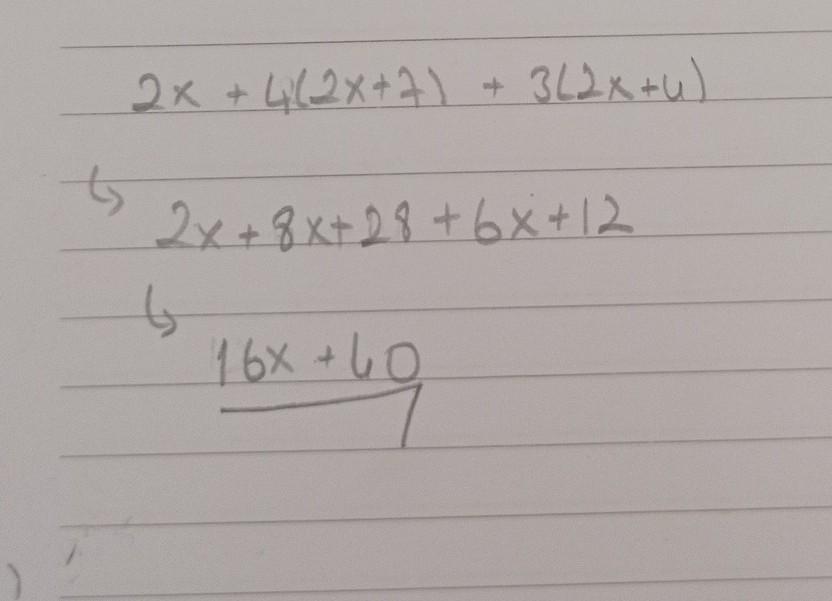 2x + 4(2x+7) + 3(2x+4)
↳ 2x+8x+28+6x+12
↳ 16x+40